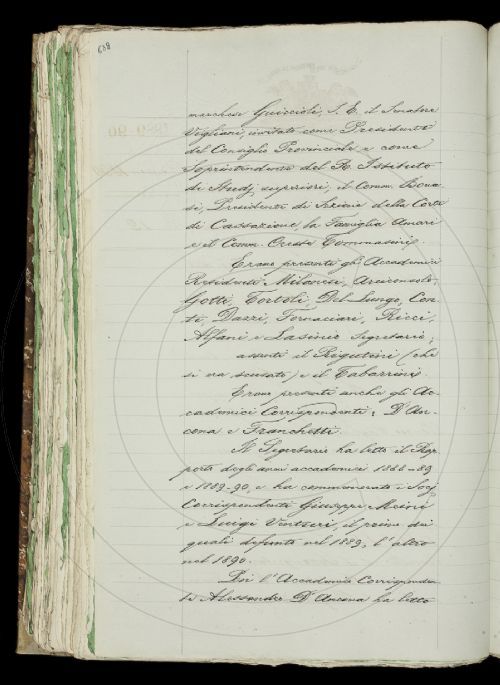 638
marchese Guiccioli, S. E. il Senatore
Vigliani, invitato come Presidente
del Consiglio Provinciale e come
Soprintendente del R. Istituto
di Studj superiori, il Comm. Bona-
si, Presidente di Sezione della Corte
di Cassazione, la Famiglia Amari
e il Comm. Oreste Tommasini.
Erano presenti gli Accademici
Residenti Milanesi, Arciconsolo,
Gotti, Tortoli, Del Lungo, Con-
ti, Dazzi, Fornaciari, Ricci,
Alfani e Lasinio Segretario;
assenti il Rigutini (che
si era scusato) e il Tabarrini.
Erano presenti anche gli Ac-
cademici Corrispondenti: D'An-
cona e Franchetti.
Il Segretario ha letto il Rap-
porto degli anni accademici 1888-89
e 1889-90, e ha commemorato i Socj
Corrispondenti Giuseppe Meini
e Luigi Venturi, il primo dei
quali defunto nel 1889, l'altro
nel 1890.
Poi l'Accademico Corrisponden-
te Alessandro D'Ancona ha letto